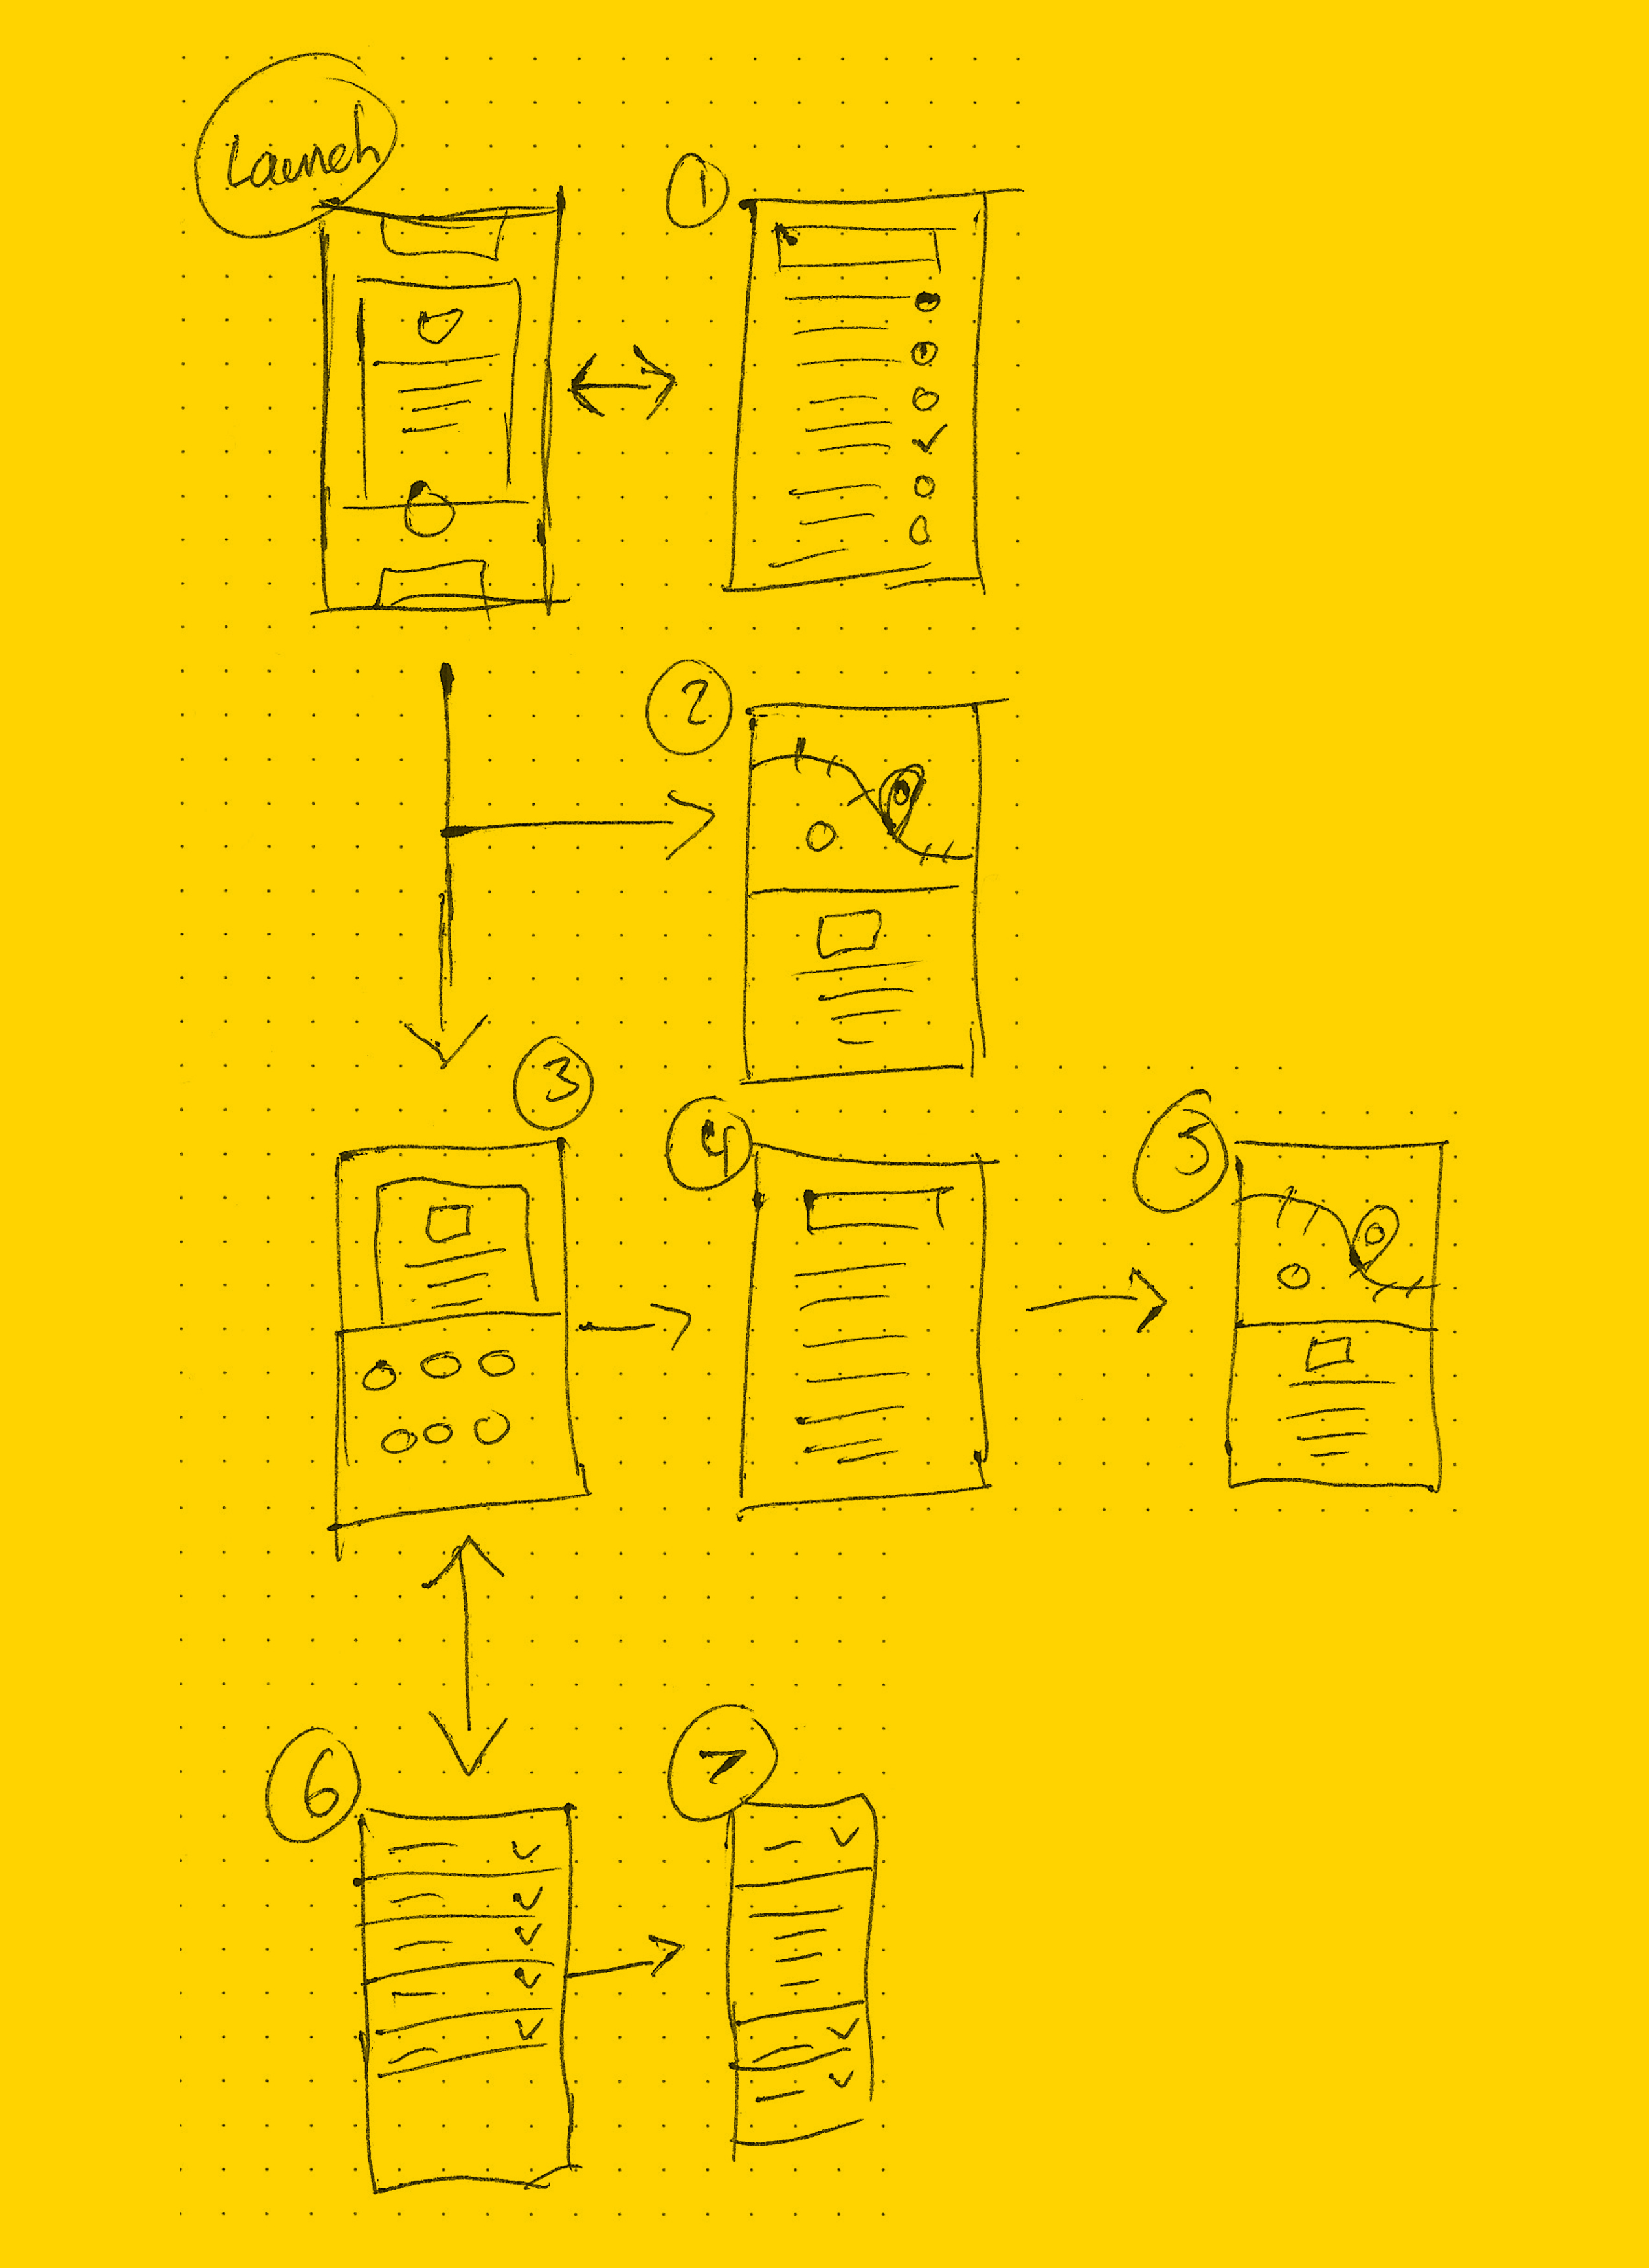 Launch
1
2
3
4
5
6
7